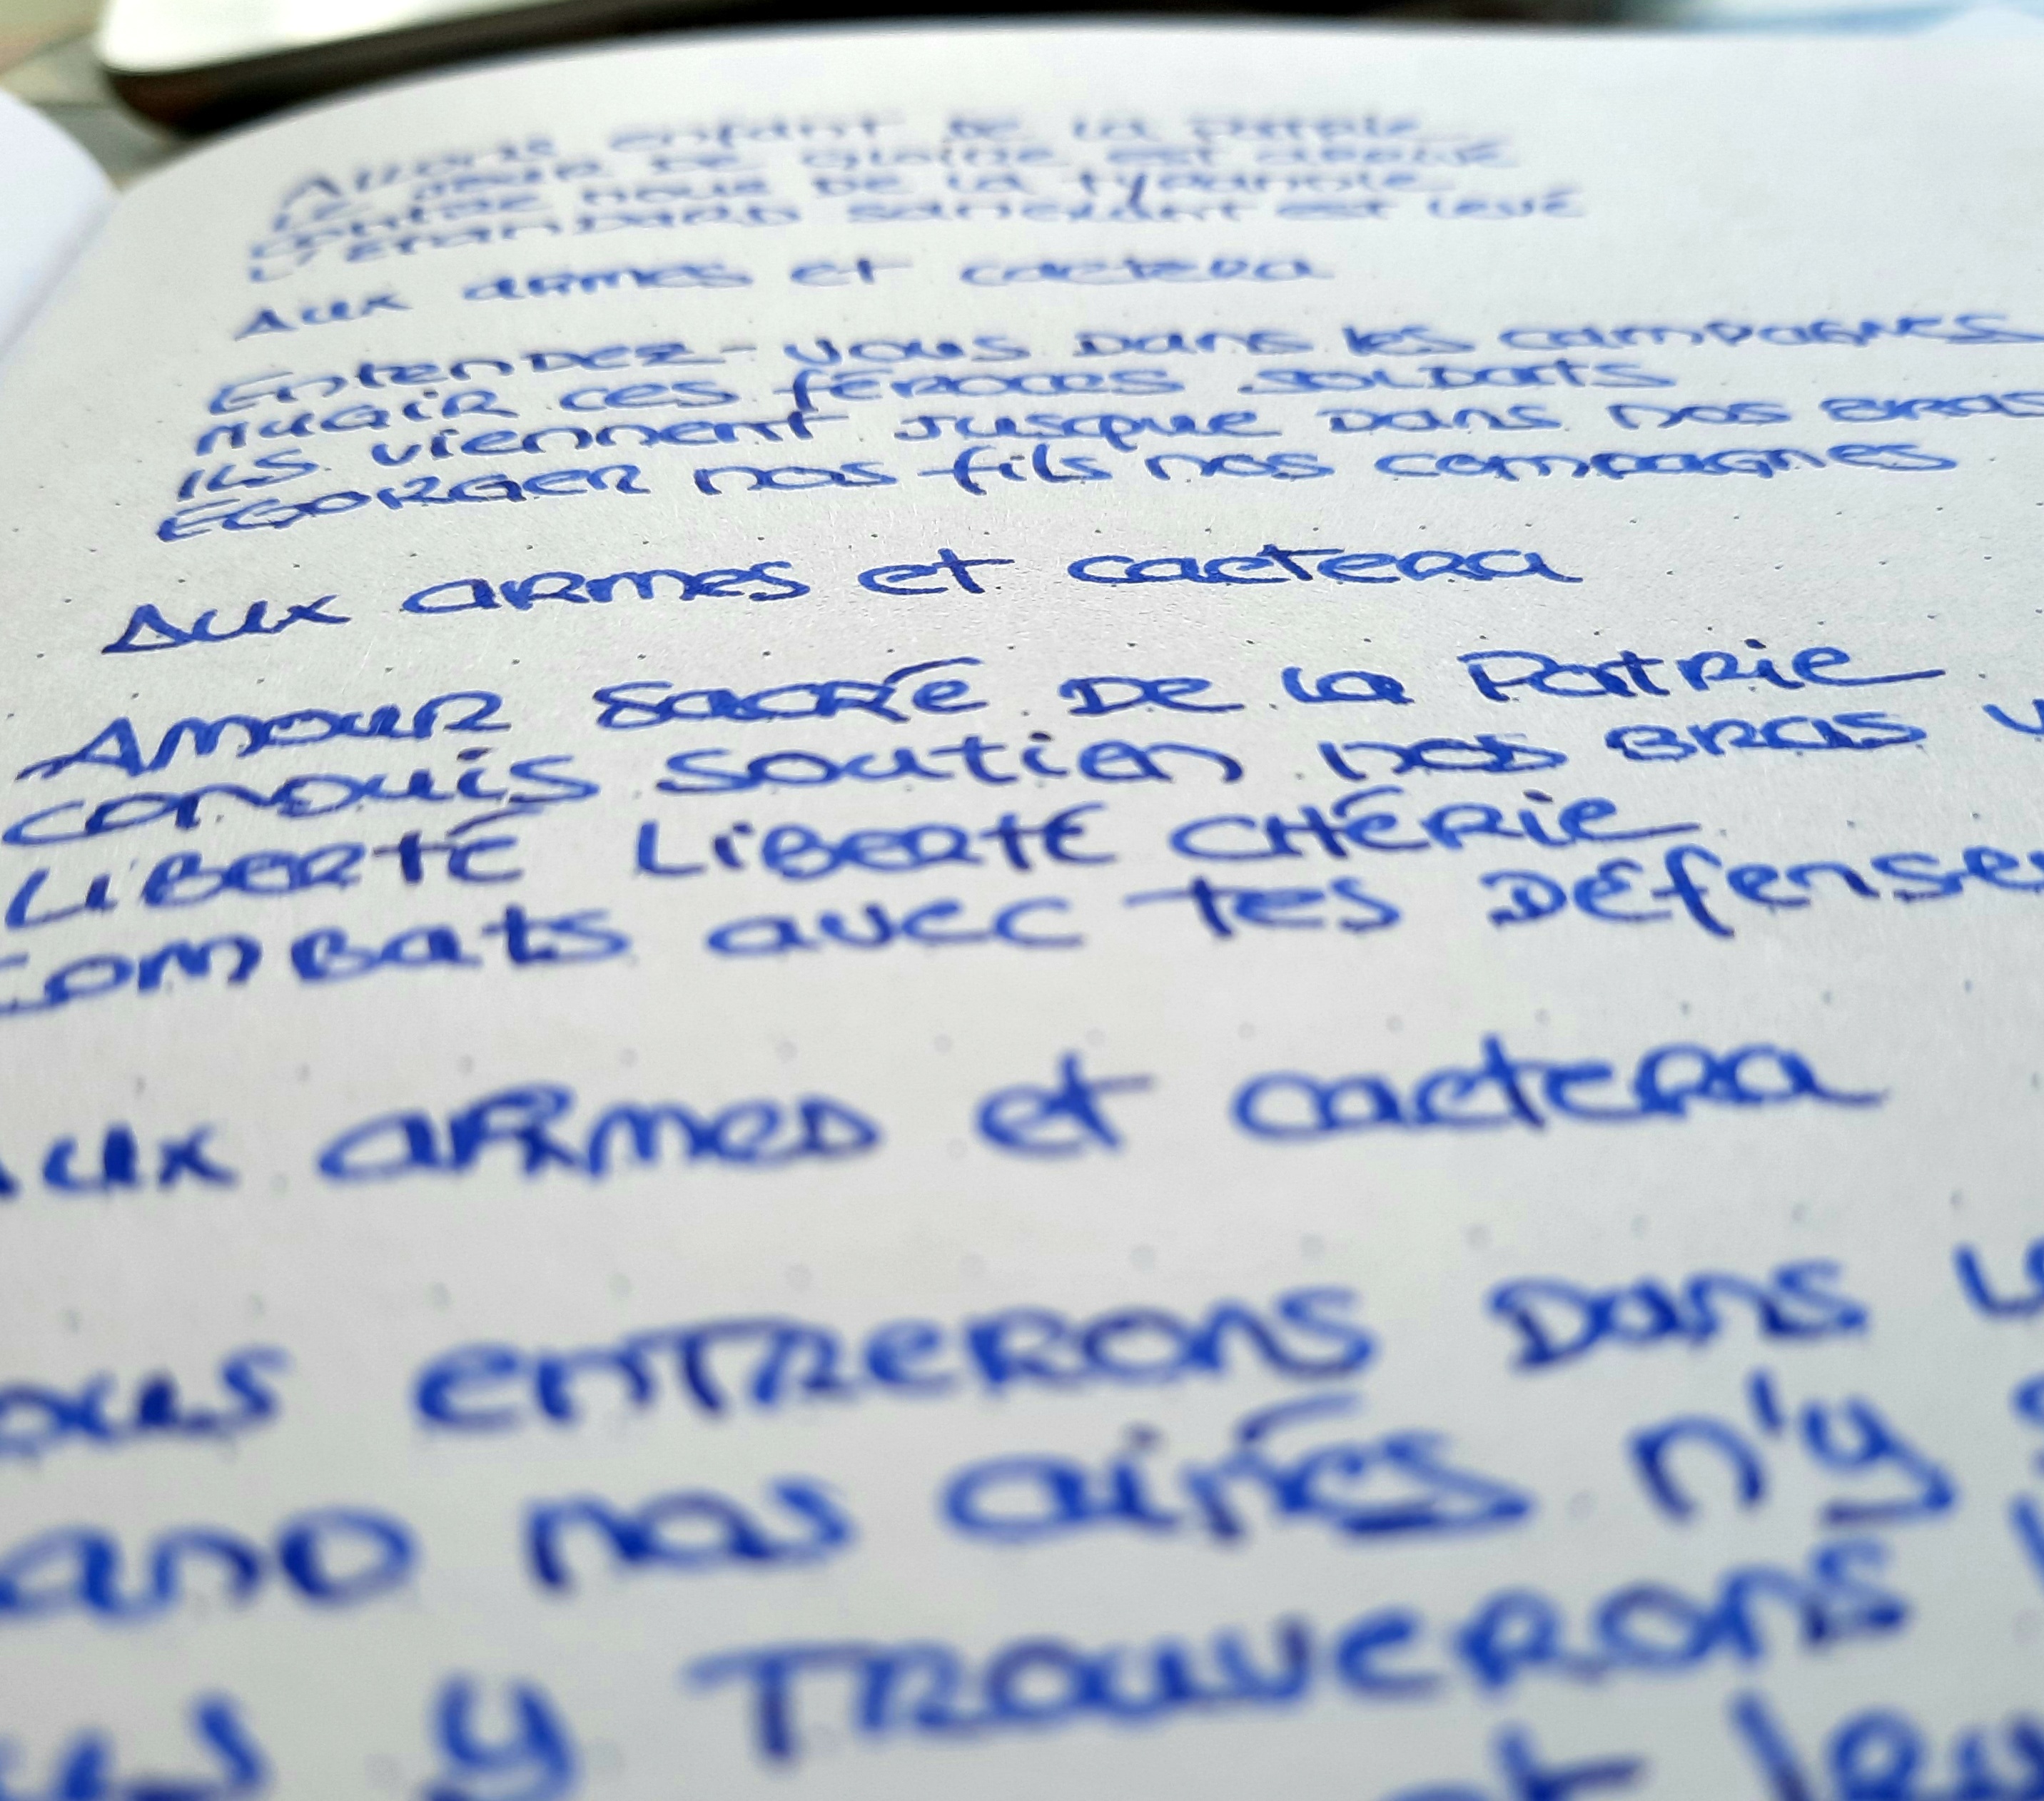 Allons enfant de la Patrie
Le jour de gloire est arrivé
Contre nous de la tyrannie
L'étandard sanglant est levé
Aux armes et caetera
Entendez-vous dans les campagnes
mugir ces féroces soldats
Ils viennent jusque dans nos bras
Egorger nos fils nos compagnes
Aux armes et caetera
Amour sacré de la Patrie
conduis soutien nos bras v
Liberté Liberté chérie
combats avec tes défenseu
aux armes et caetera
ous entrerons dans l
and nos ainés n'y
y trouverons
et leu